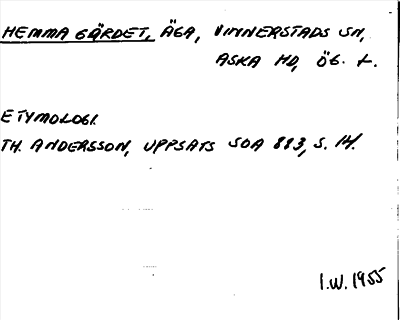 HEMMA GÄRDET, ÄGA, VINNERSTADS SN,
ASKA HD, ÖG. L.
ETYMOLOGI.
TH. ANDERSSON, UPPSATS SOA 883, S. 14.
I.W. 1955